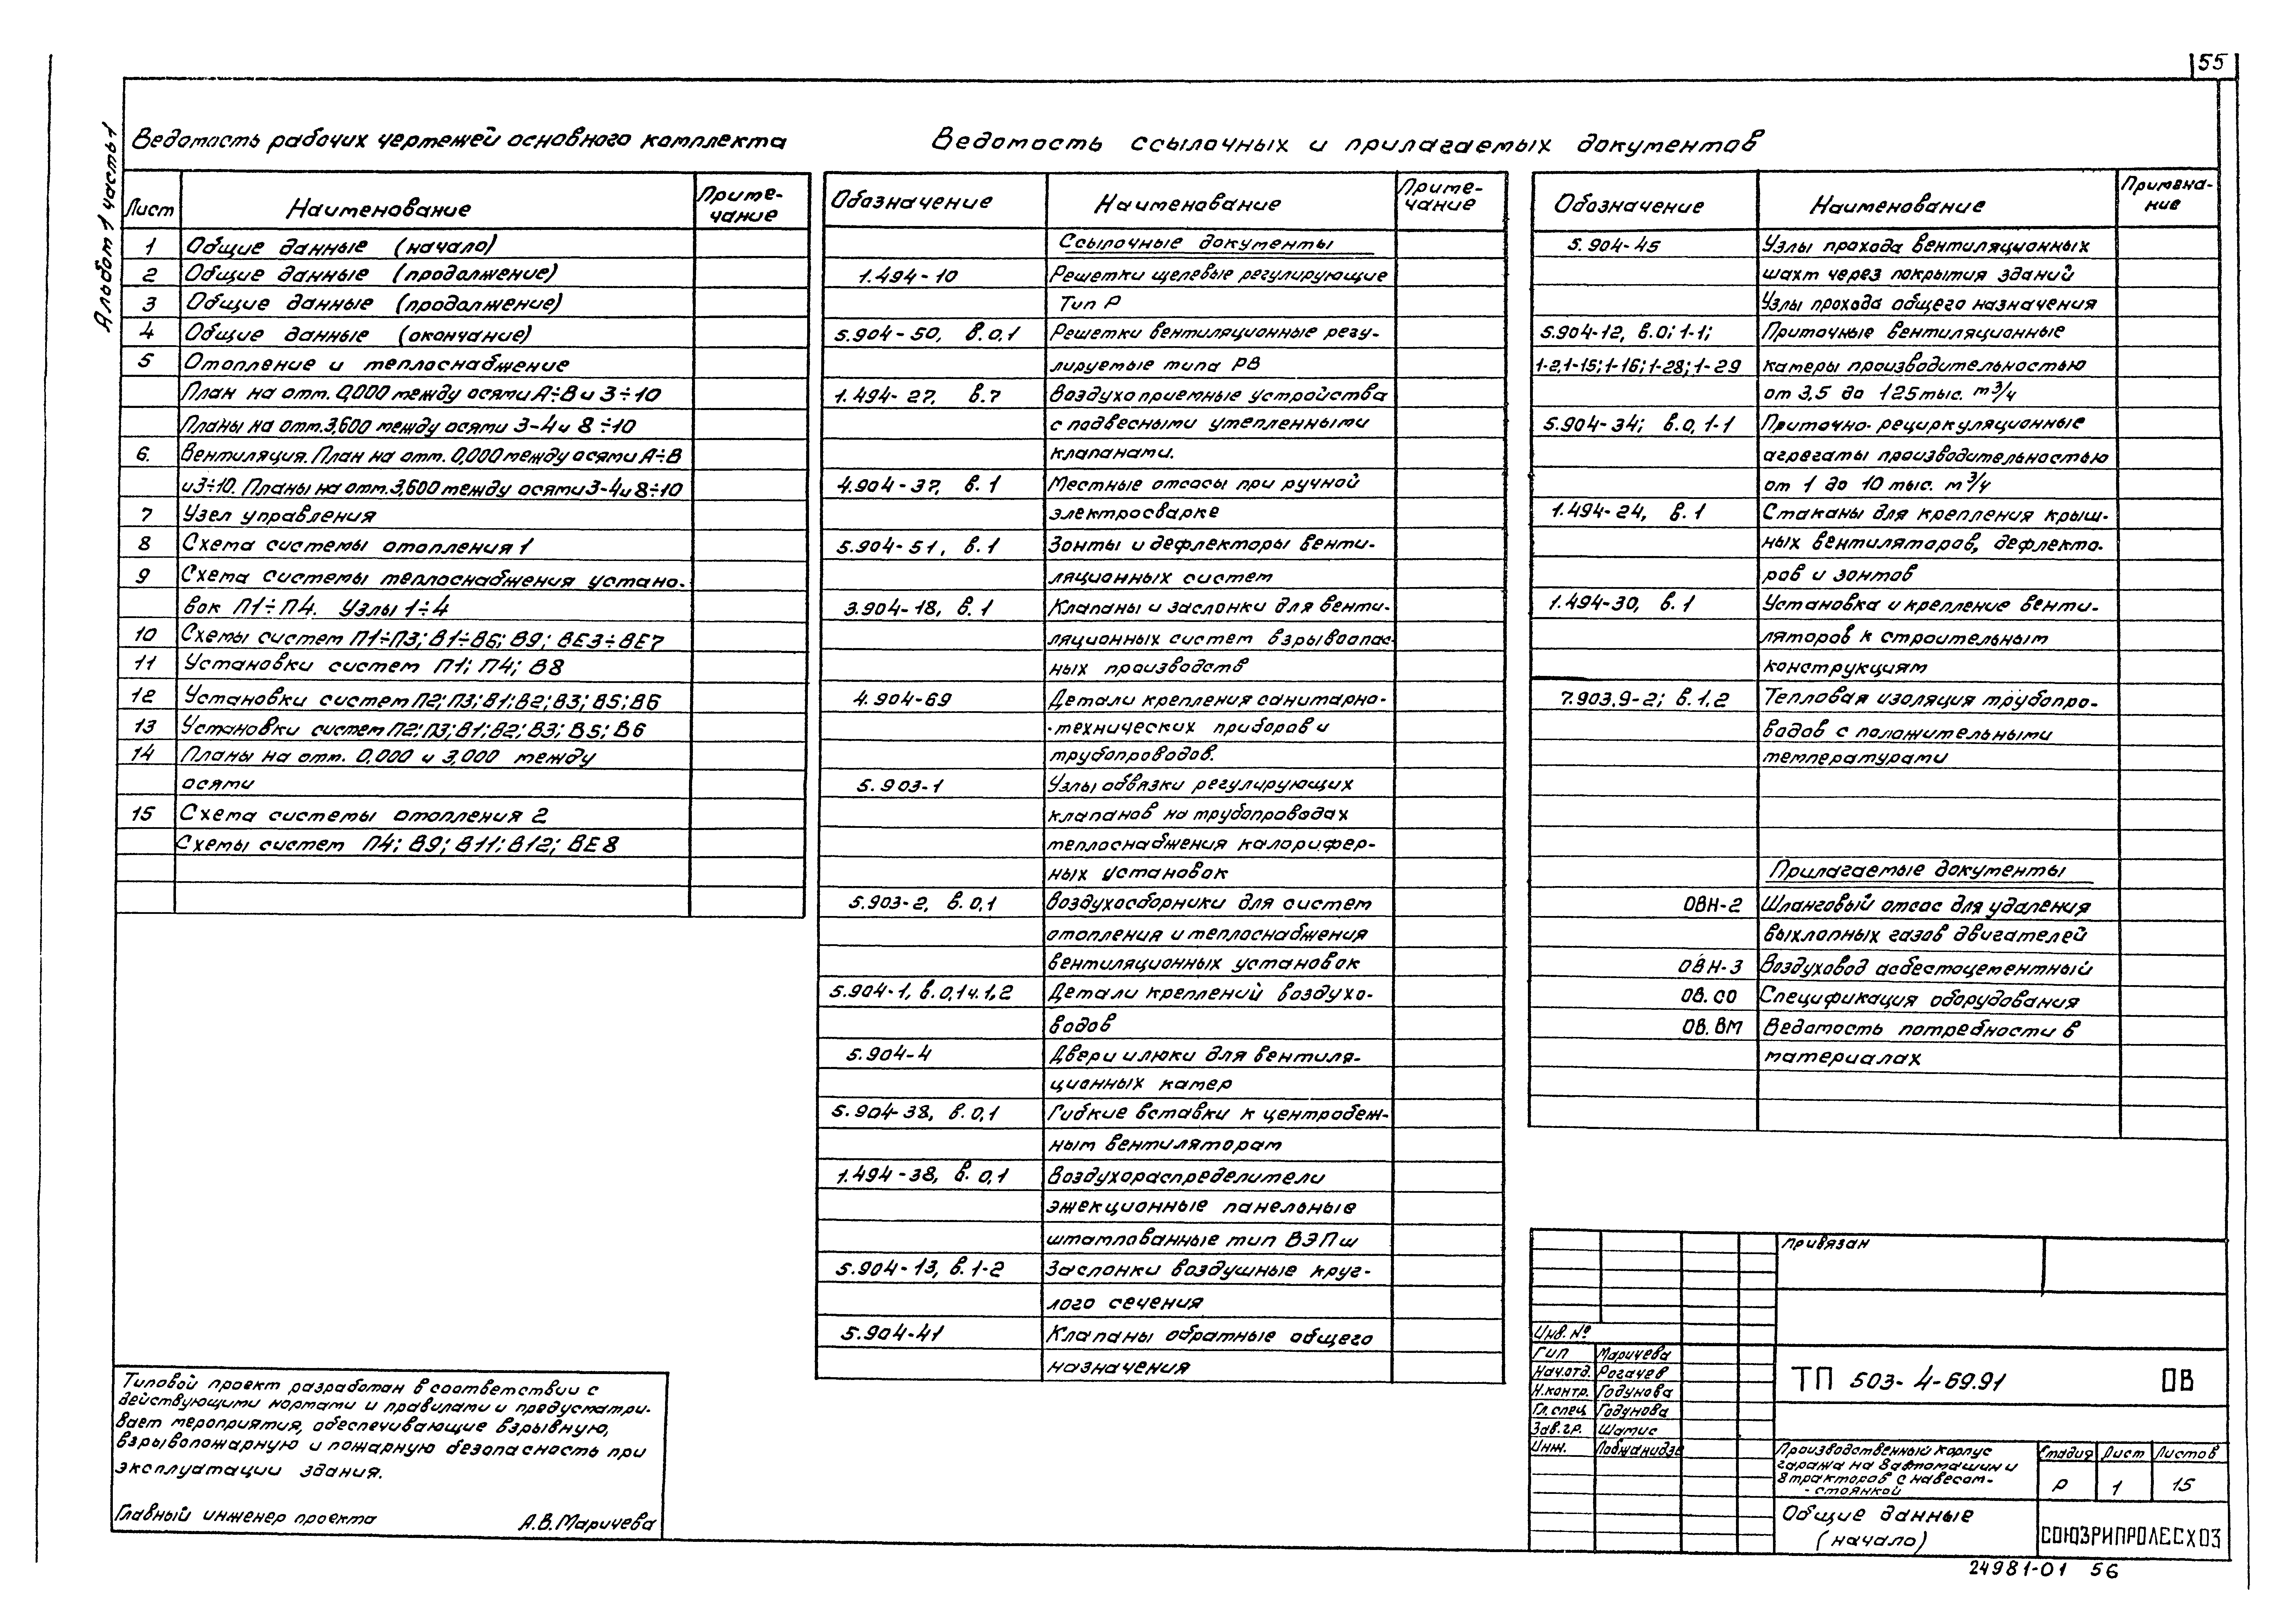 55
Альбом 1 часть 1
Ведомость рабочих чертежей основного комплекта
Лист Наименование Приме-
чание
1 Общие данные (начало)
2 Общие данные (продолжение)
3 Общие данные (продолжение)
4 Общие данные (окончание)
5 Отопление и теплоснабжение
План на отм. 0,000 между осями А÷В и 3÷10
Планы на отм. 3,600 между осями 3-4 и 8÷10
6. Вентиляция. План на отм. 0,000 между осями А÷В
и 3÷10. Планы на отм. 3,600 между осями 3-4 и 8÷10
7 Узел управления
8 Схема системы отопления 1
9 Схема системы теплоснабжения устано-
вок П1÷П4. Узлы 1÷4
10 Схемы систем П1÷П3; В1÷В6; В9; ВЕ3÷ВЕ7
11 Установки систем П1; П4; В8
12 Установки систем П2; П3; В1; В2; В3; В5; В6
13 Установки систем П2; П3; В1; В2; В3; В5; В6
14 Планы на отм. 0,000 и 3,000 между
осями
15 Схема системы отопления 2
Схемы систем П4; В9; В11; В12; ВЕ8
Ведомость ссылочных и прилагаемых документов
Обозначение Наименование Приме-
чание
Ссылочные документы
1.494-10 Решетки щелевые регулирующие
Тип Р
5.904-50, в.0,1 Решетки вентиляционные регу-
лируемые типа РВ
1.494-27, в.7 Воздухоприемные устройства
с подвесными утепленными
клапанами.
4.904-37, в.1 Местные отсосы при ручной
электросварке
5.904-51, в.1 Зонты и дефлекторы венти-
ляционных систем
3.904-18, в.1 Клапаны и заслонки для венти-
ляционных систем взрывоопас-
ных производств
4.904-69 Детали крепления санитарно-
-технических приборов и
трубопроводов.
5.903-1 Узлы обвязки регулирующих
клапанов на трубопроводах
теплоснабжения калорифер-
ных установок
5.903-2, в.0,1 Воздухосборники для систем
отопления и теплоснабжения
вентиляционных установок
5.904-1, в.0,1 ч.1,2 Детали креплений воздухо-
водов
5.904-4 Двери и люки для вентиля-
ционных камер
5.904-38, в.0,1 Гибкие вставки к центробеж-
ным вентиляторам
1.494-38, в.0,1 Воздухораспределители
эжекционные панельные
штампованные тип ВЭПш
5.904-13, в.1-2 Заслонки воздушные круг-
лого сечения
5.904-41 Клапаны обратные общего
назначения
Обозначение Наименование Примеча-
ние
5.904-45 Узлы прохода вентиляционных
шахт через покрытия зданий
Узлы прохода общего назначения
5.904-12, в.0; 1-1; Приточные вентиляционные
1-2,1-15; 1-16; 1-28; 1-29 камеры производительностью
от 3,5 до 125 тыс. м³/ч
5.904-34; в.0, 1-1 Приточно-рециркуляционные
агрегаты производительностью
от 1 до 10 тыс. м³/ч
1.494-24, в.1 Стаканы для крепления крыш-
ных вентиляторов, дефлекто-
ров и зонтов
1.494-30, в.1 Установка и крепление венти-
ляторов к строительным
конструкциям
7.903.9-2; в.1,2 Тепловая изоляция трубопро-
водов с положительными
температурами
Прилагаемые документы
ОВН-2 Шланговый отсос для удаления
выхлопных газов двигателей
ОВН-3 Воздуховод асбестоцементный
ОВ.СО Спецификация оборудования
ОВ.ВМ Ведомость потребности в
материалах
Типовой проект разработан в соответствии с
действующими нормами и правилами и предусматри-
вает мероприятия, обеспечивающие взрывную,
взрывопожарную и пожарную безопасность при
эксплуатации здания.
Главный инженер проекта А.В.Маричева
Привязан
Инв. №
Гип Маричева
Нач.отд. Рогачев
Н.контр. Годунова
Гл.спец Годунова
Зав.гр. Шамис
Инж.
ТП 503-4-69.91 ОВ
Производственный корпус
гаража на 8 автомашин и
8 тракторов с навесом-
-стоянкой
Стадия Лист Листов
Р 1 15
Общие данные
(начало)
СОЮЗГИПРОЛЕСХОЗ
24981-01 56